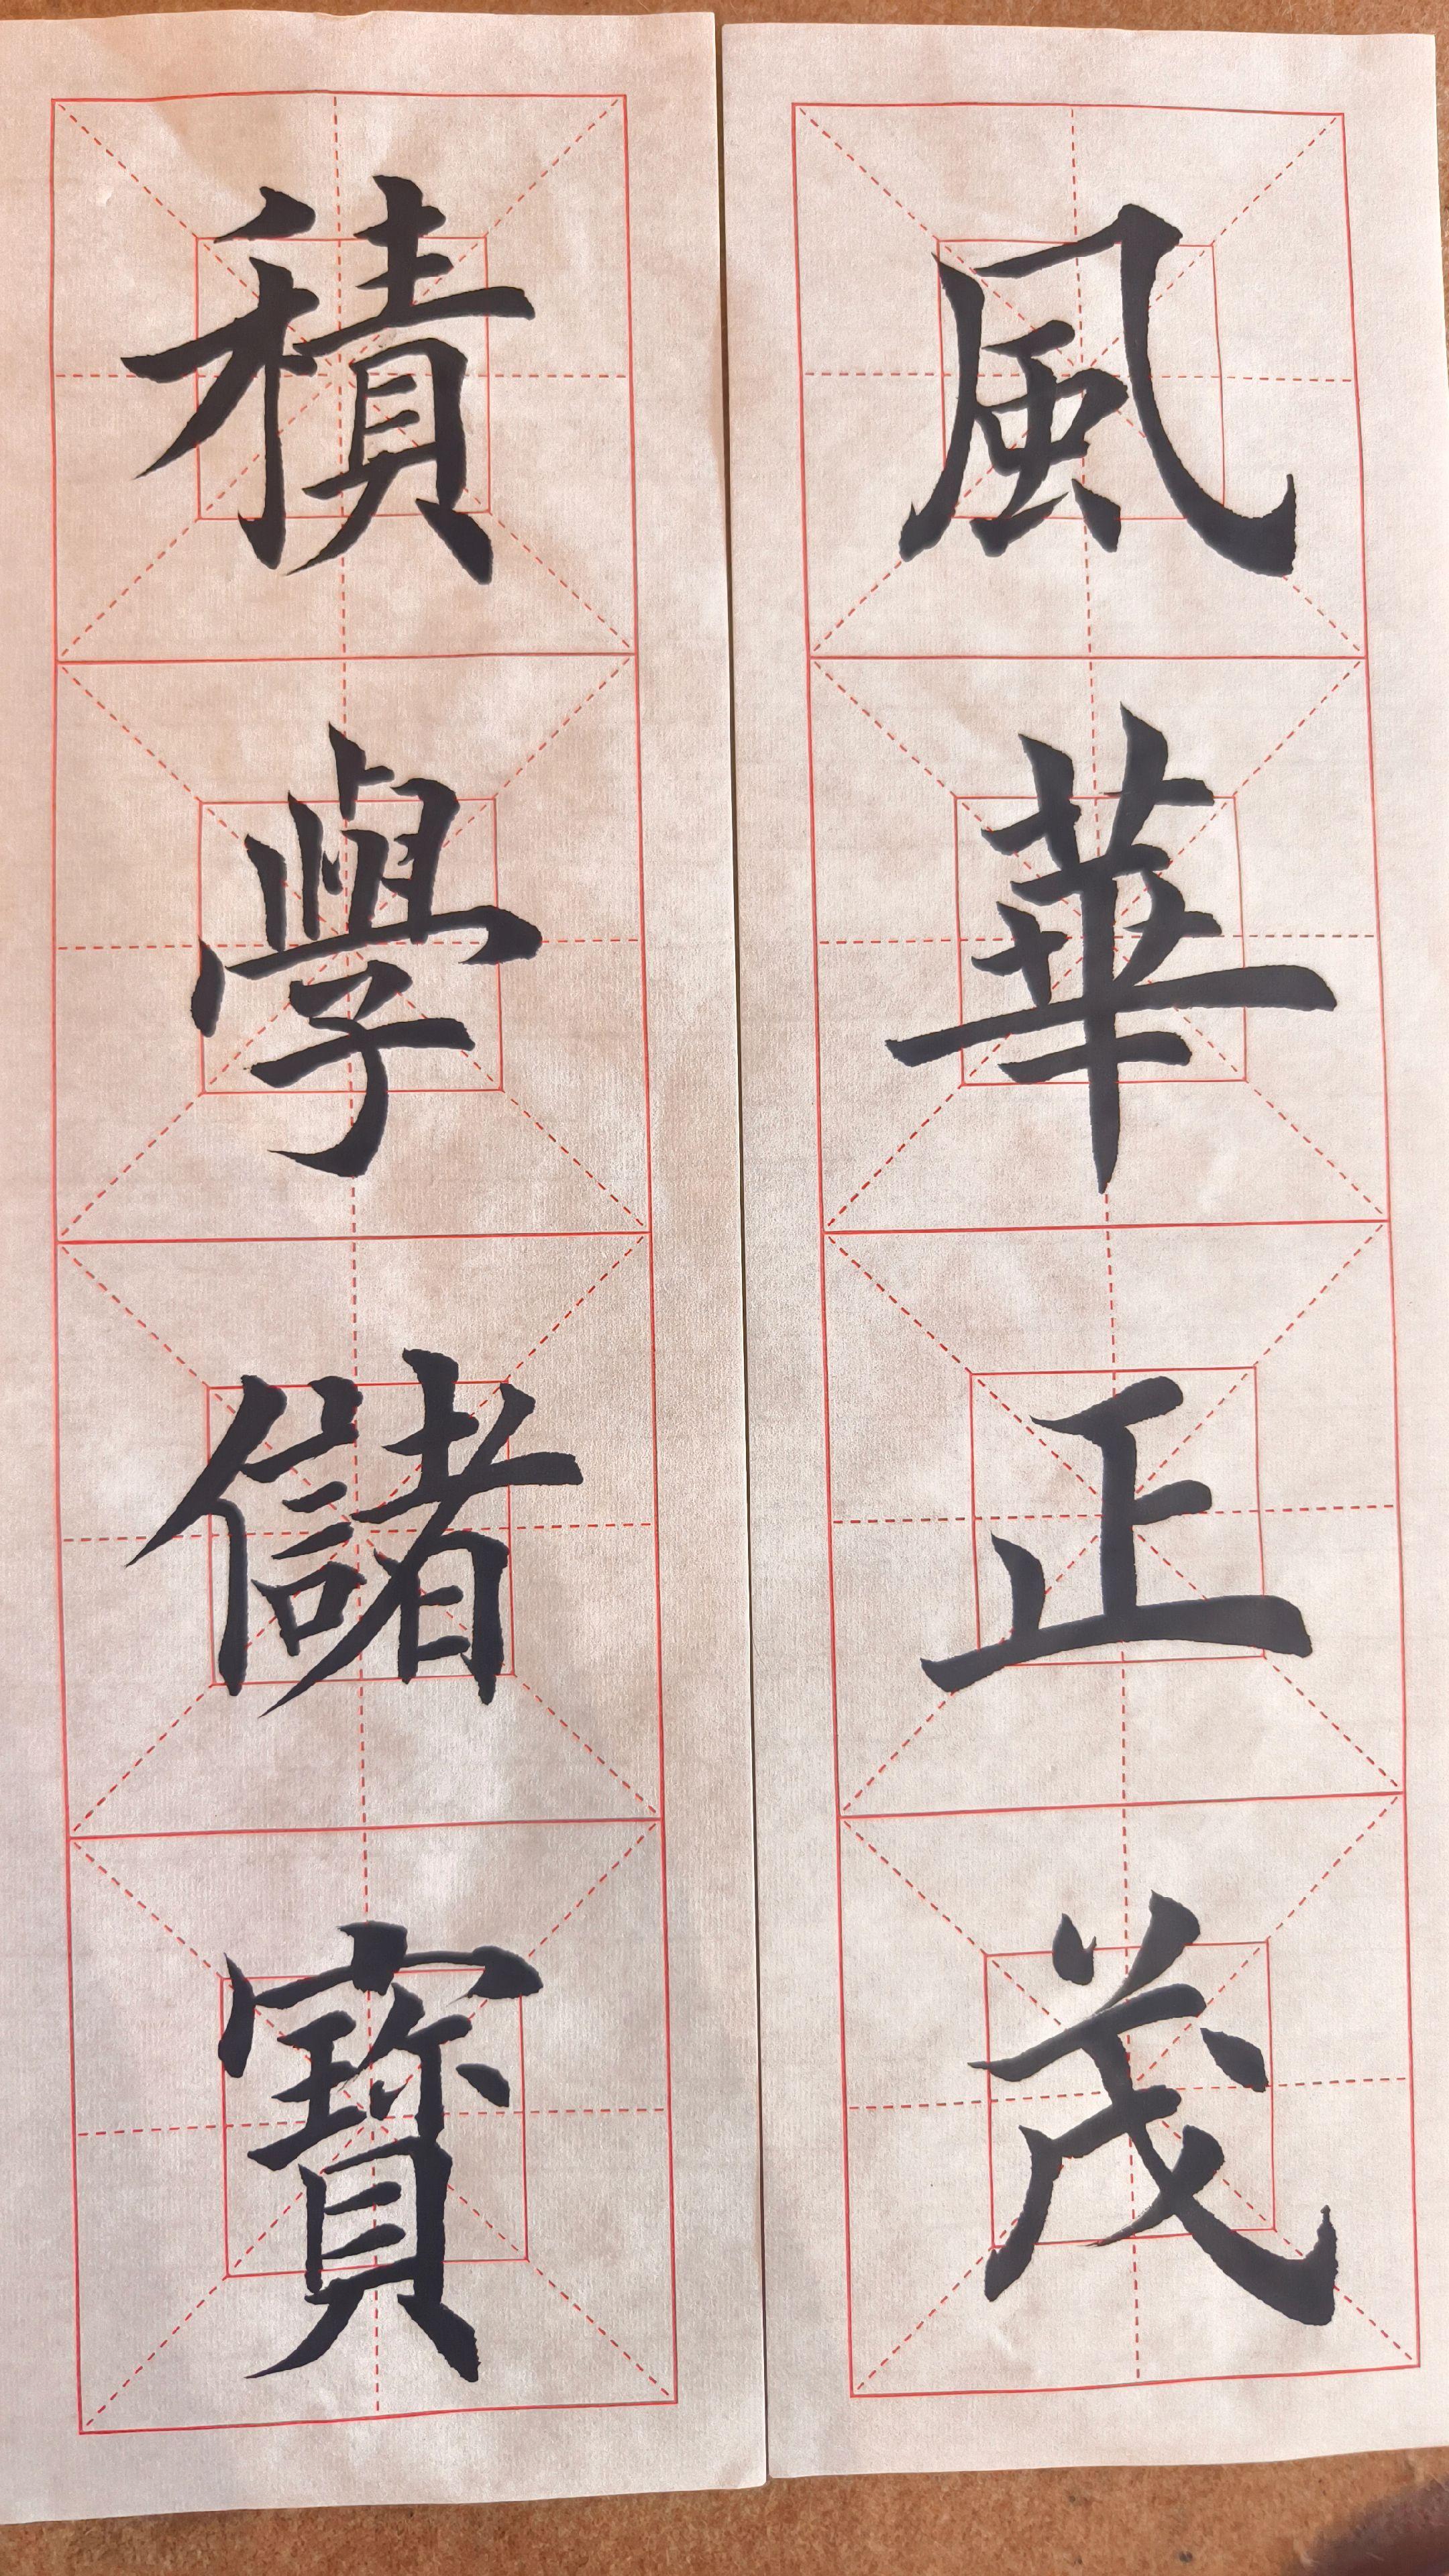 風華正茂
積學儲寶